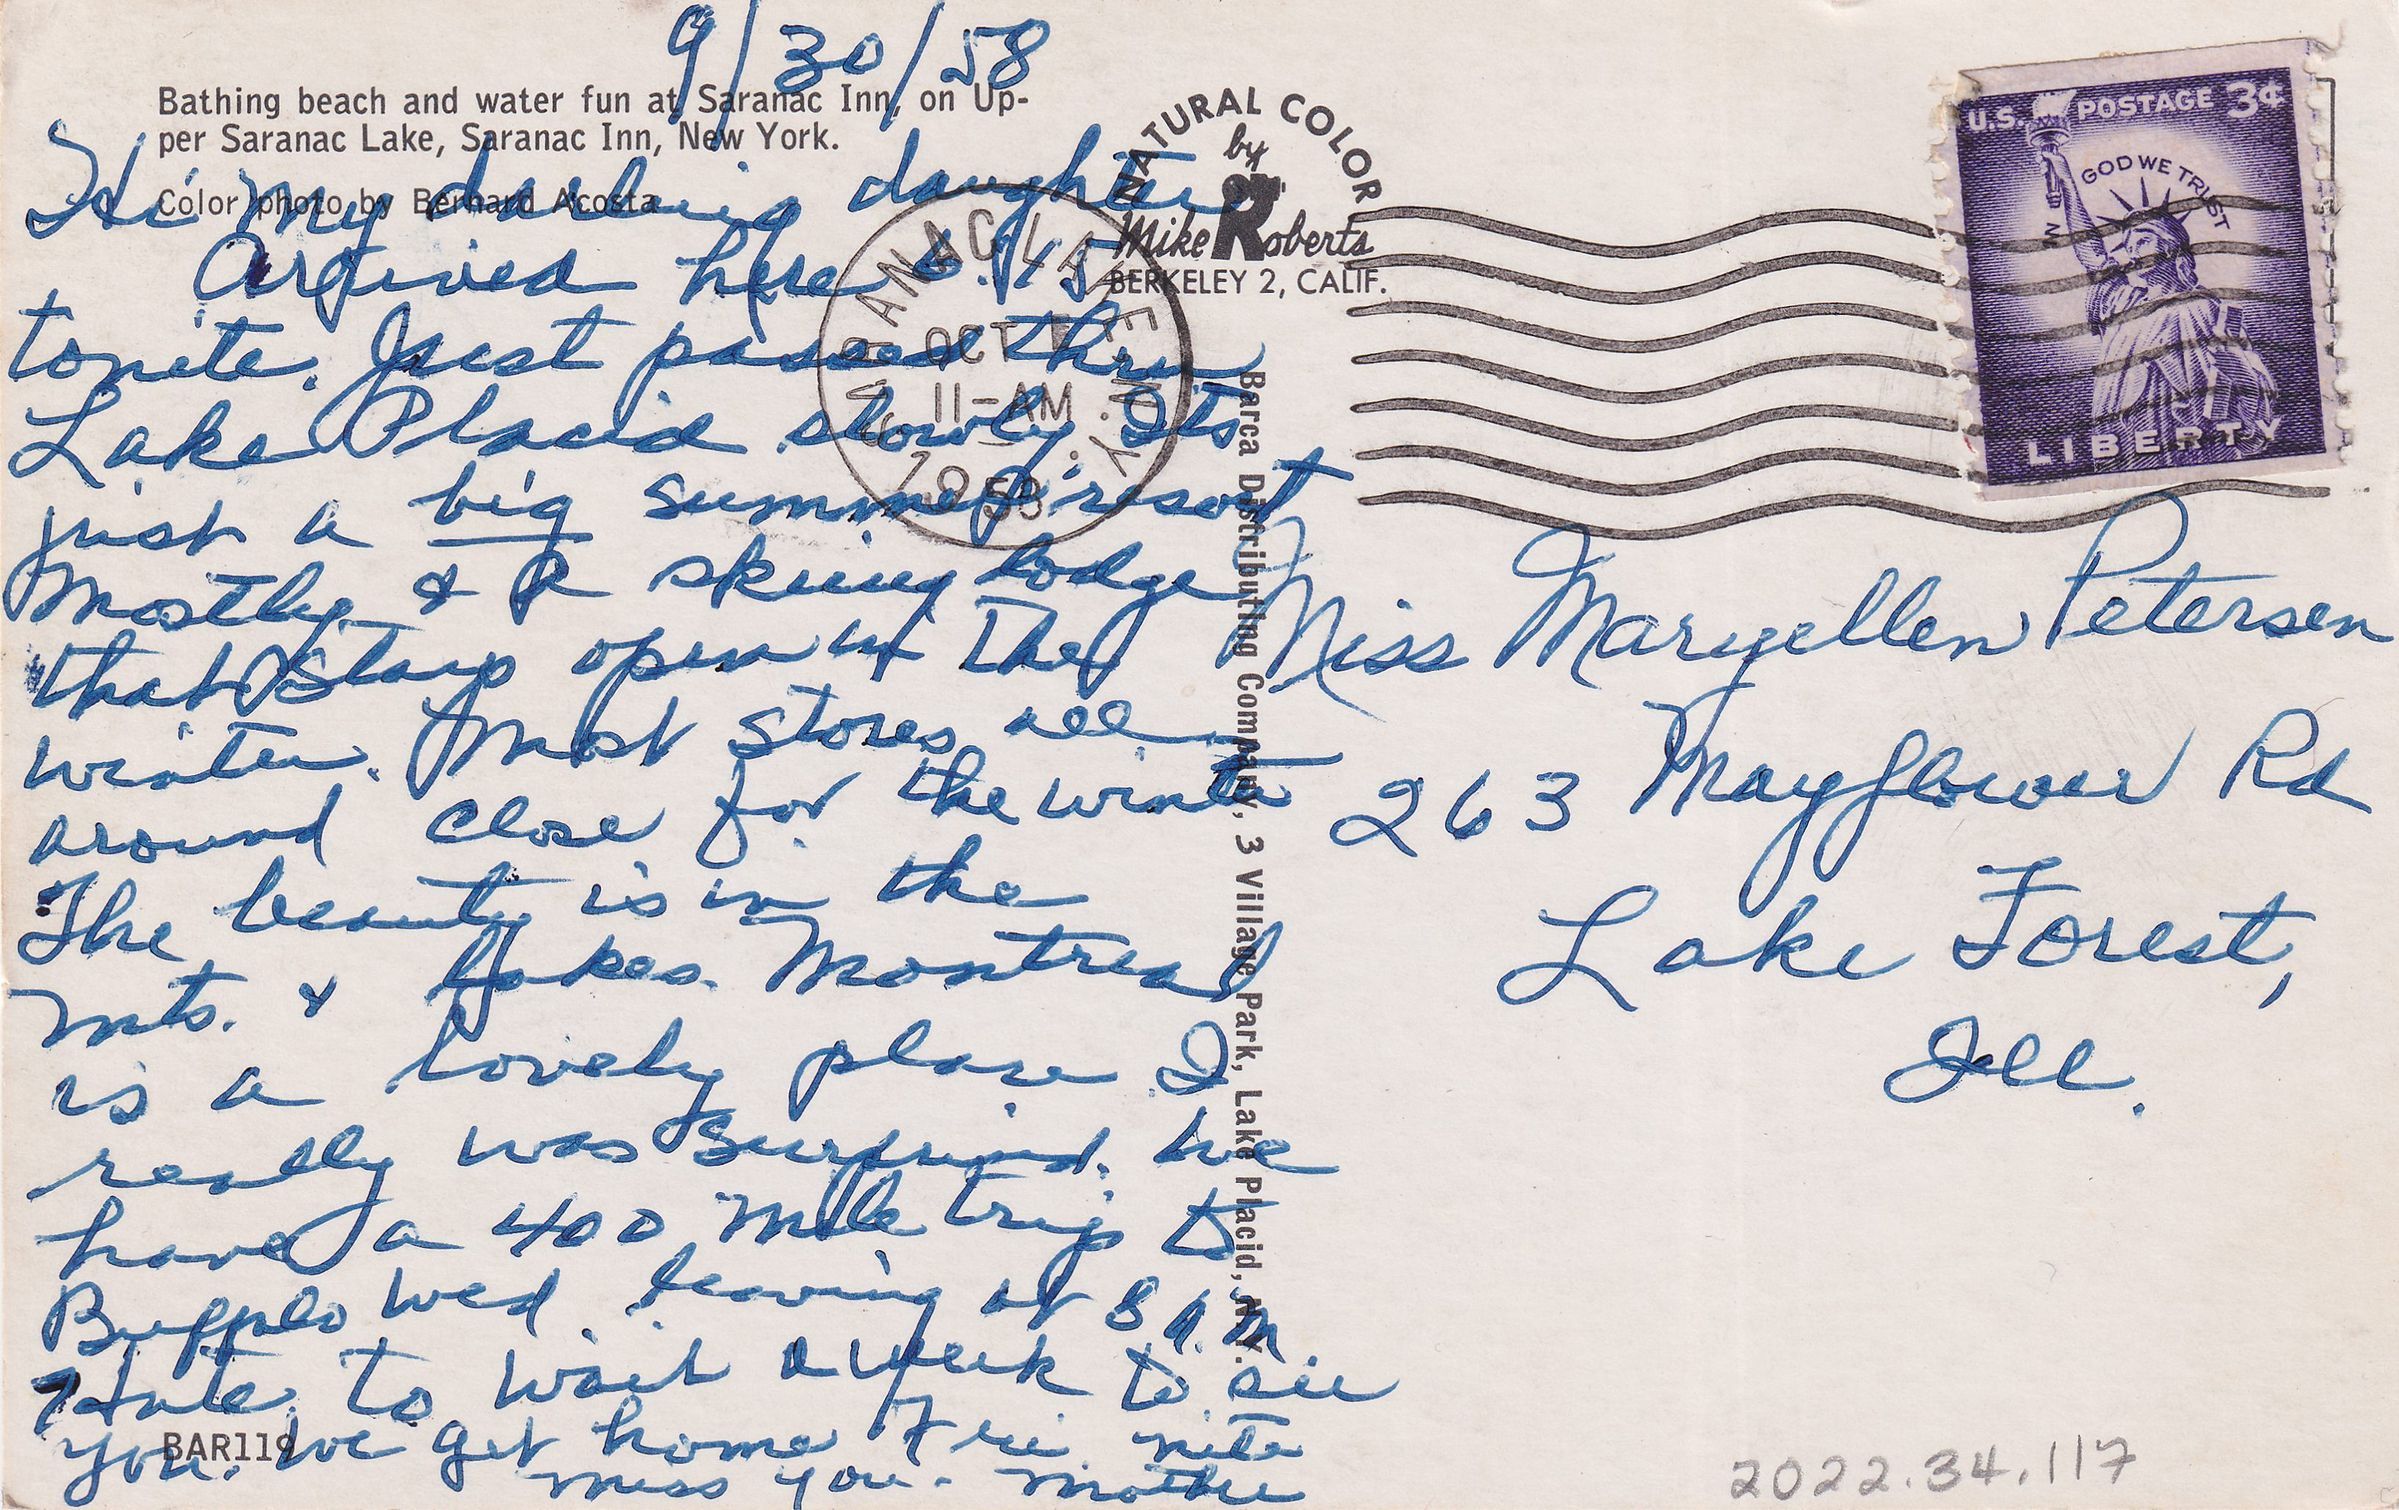 9/30/58
Bathing beach and water fun at Saranac Inn, on Up-
per Saranac Lake, Saranac Inn, New York.
Color photo by Bernard Acosta
Hi my darling daughter
Arrived here 6:15
tonite. Just passed thru
Lake Placid slowly. Its
just a big summer resort
mostly & a skiing lodge
that stays open in the
winter. Most stores all
around close for the winter
The beauty is in the
mts. & lakes. Montreal
is a lovely place I
really was surprised. We
have a 400 mile trip to
Buffalo Wed. leaving at 8 A.M.
Hate to wait a week to see
you. We get home Fri. nite
miss you - Mother
BAR119
NATURAL COLOR
by
Mike Roberts
BERKELEY 2, CALIF.
SARANAC LAKE N.Y.
OCT 1
11-AM
1958
Barca Distributing Company, 3 Village Park, Lake Placid, N.Y.
U.S. POSTAGE 3¢
IN GOD WE TRUST
LIBERTY
Miss Maryellen Petersen
263 Mayflower Rd
Lake Forest,
Ill.
2022.34.117